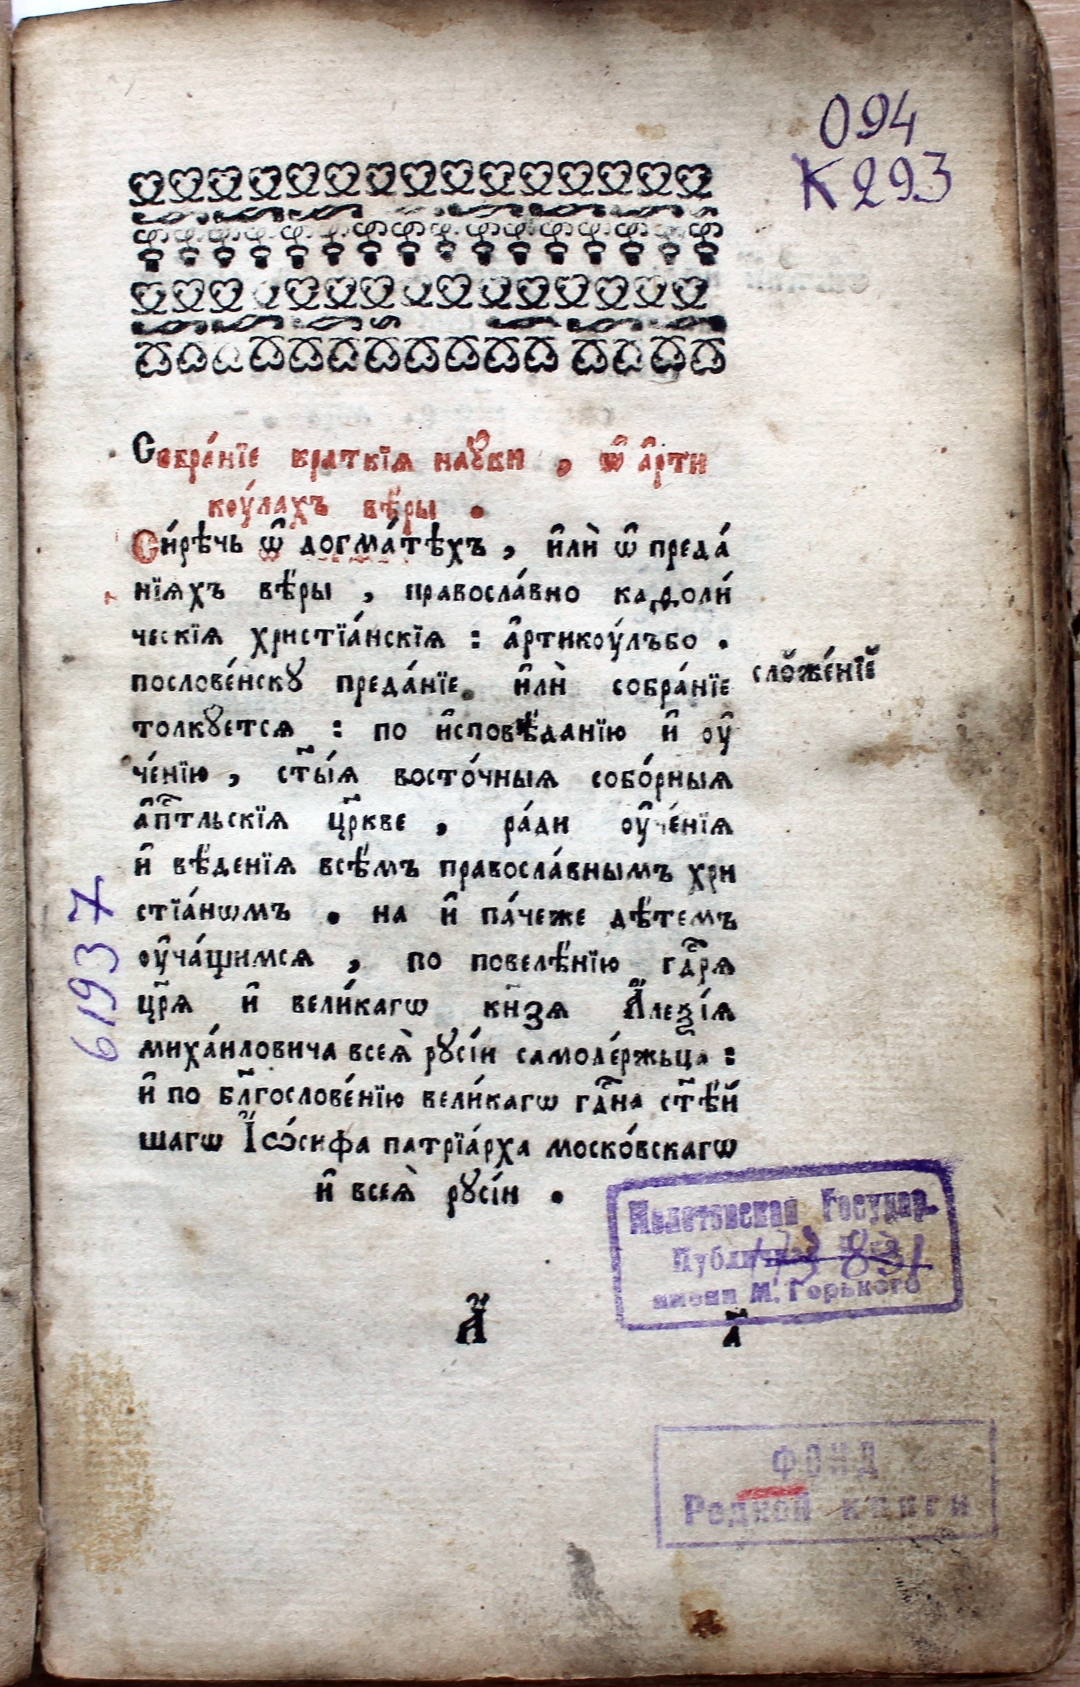 094
К293
Собра́нїе краткїѧ наꙋки , ѡ҆ а҆рти
коу́лахъ вѣ́ры .
Си́рѣчь ѡ҆ догма́тѣхъ , и҆лѝ ѡ҆ преда́
нїѧхъ вѣ́ры , правосла́вно каѳоли́
ческїѧ христїа́нскїѧ : а҆ртикоу́лъбо .
пословѣ́нскꙋ преда́нїе и҆лѝ собра́нїе
сложе́нїе
толкꙋ́етсѧ : по и҆сповѣ́данїю и҆ оу҆
че́нїю , ст҃ы́ѧ восто́чныѧ собо́рныѧ
а҆пⷭ҇тльскїѧ цр҃кве , ра́ди оу҆че́нїѧ
и҆ вѣ́денїѧ всѣ́мъ правосла́внымъ хри
стїа́нѡмъ . на и҆ па́чеже дѣ́темъ
оу҆ча́щимсѧ , по повелѣ́нїю гдⷭ҇рѧ
цр҃ѧ и҆ вели́кагѡ кн҃зѧ А҆леѯі́ѧ
миха́иловича всеѧ̀ рꙋсі́и самоде́ржьца :
и҆ по бл҃гослове́нїю вели́кагѡ гдⷭ҇на ст҃ѣ́й
шагѡ І҆ѡ́сифа патрїа́рха моско́вскагѡ
и҆ всеѧ̀ рꙋсі́и .
61937
Государ.
имени М. Горького
А҃
а҃
ФОНД
Редкой книги